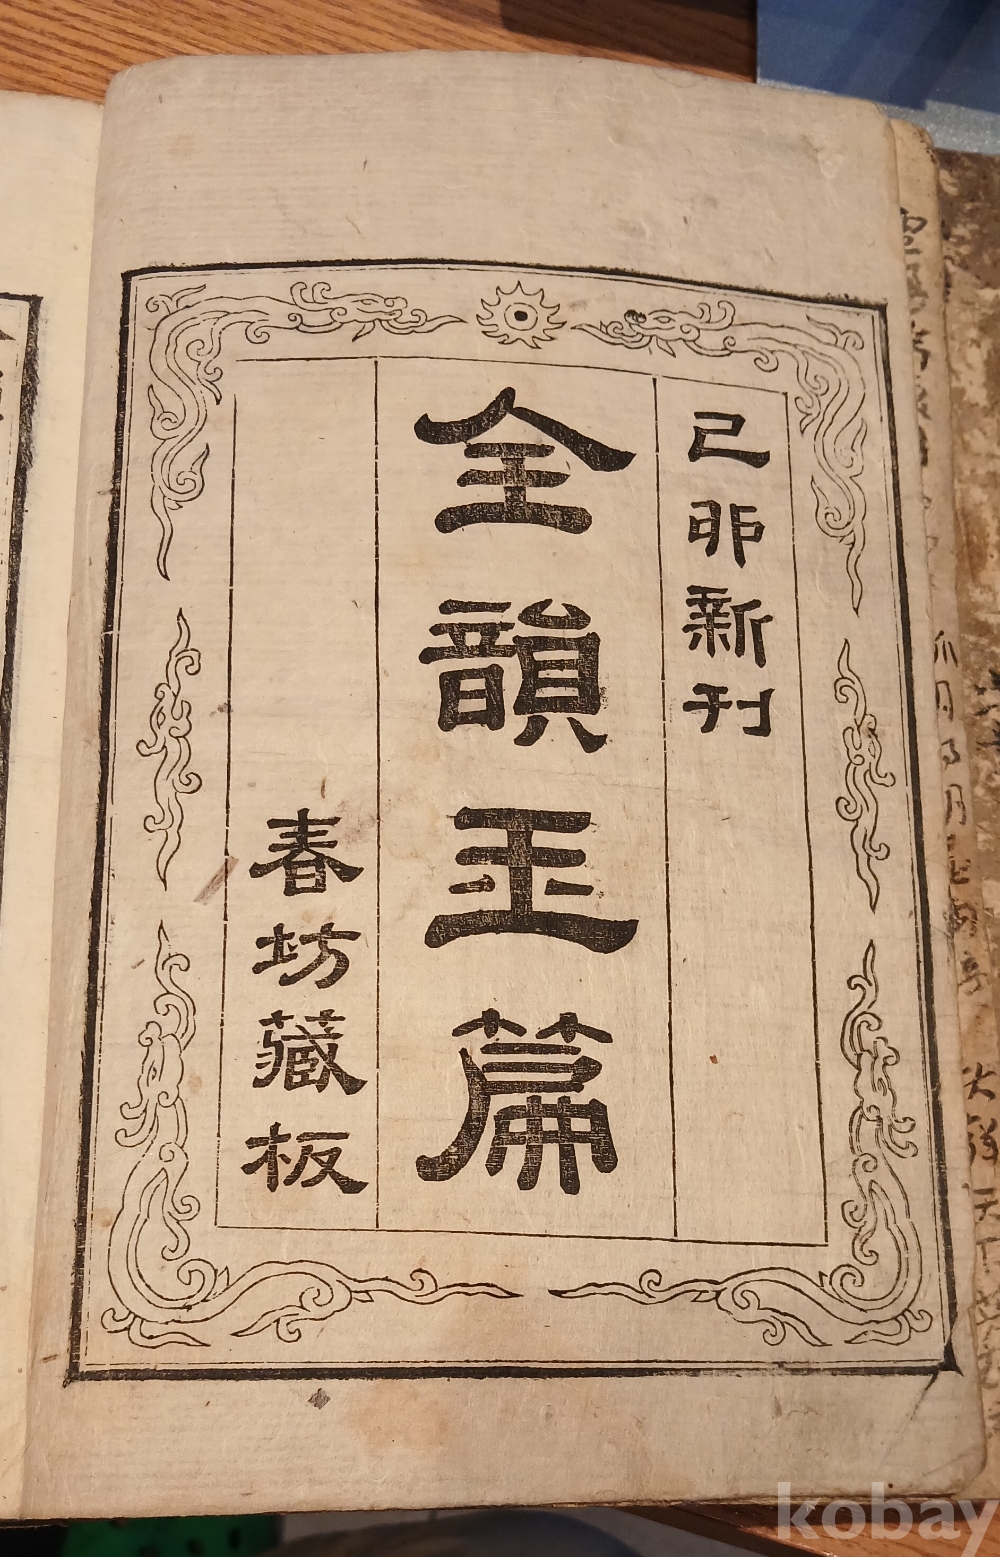 己卯新刊
全韻玉篇
春坊藏板
kobay